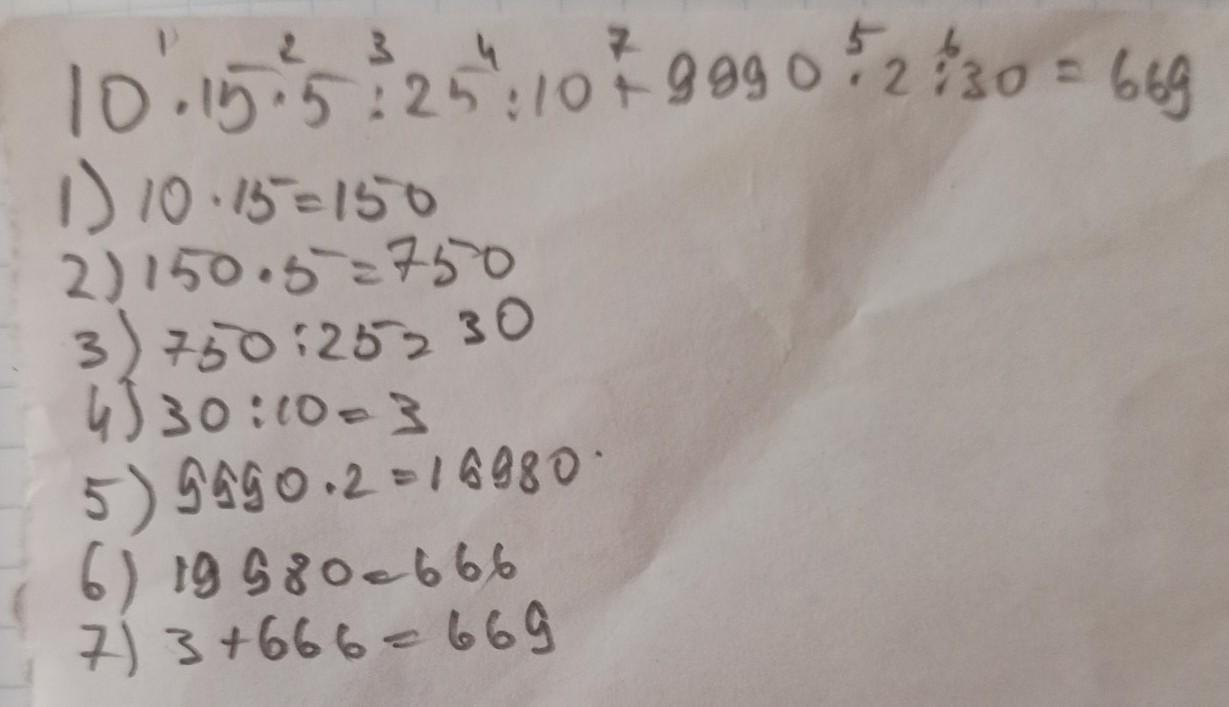 1 2 3 4 7 5 6
10·15·5:25:10+9990·2:30=669
1) 10·15=150
2) 150·5=750
3) 750:25=30
4) 30:10=3
5) 9990·2=19980
6) 19980=666
7) 3+666=669